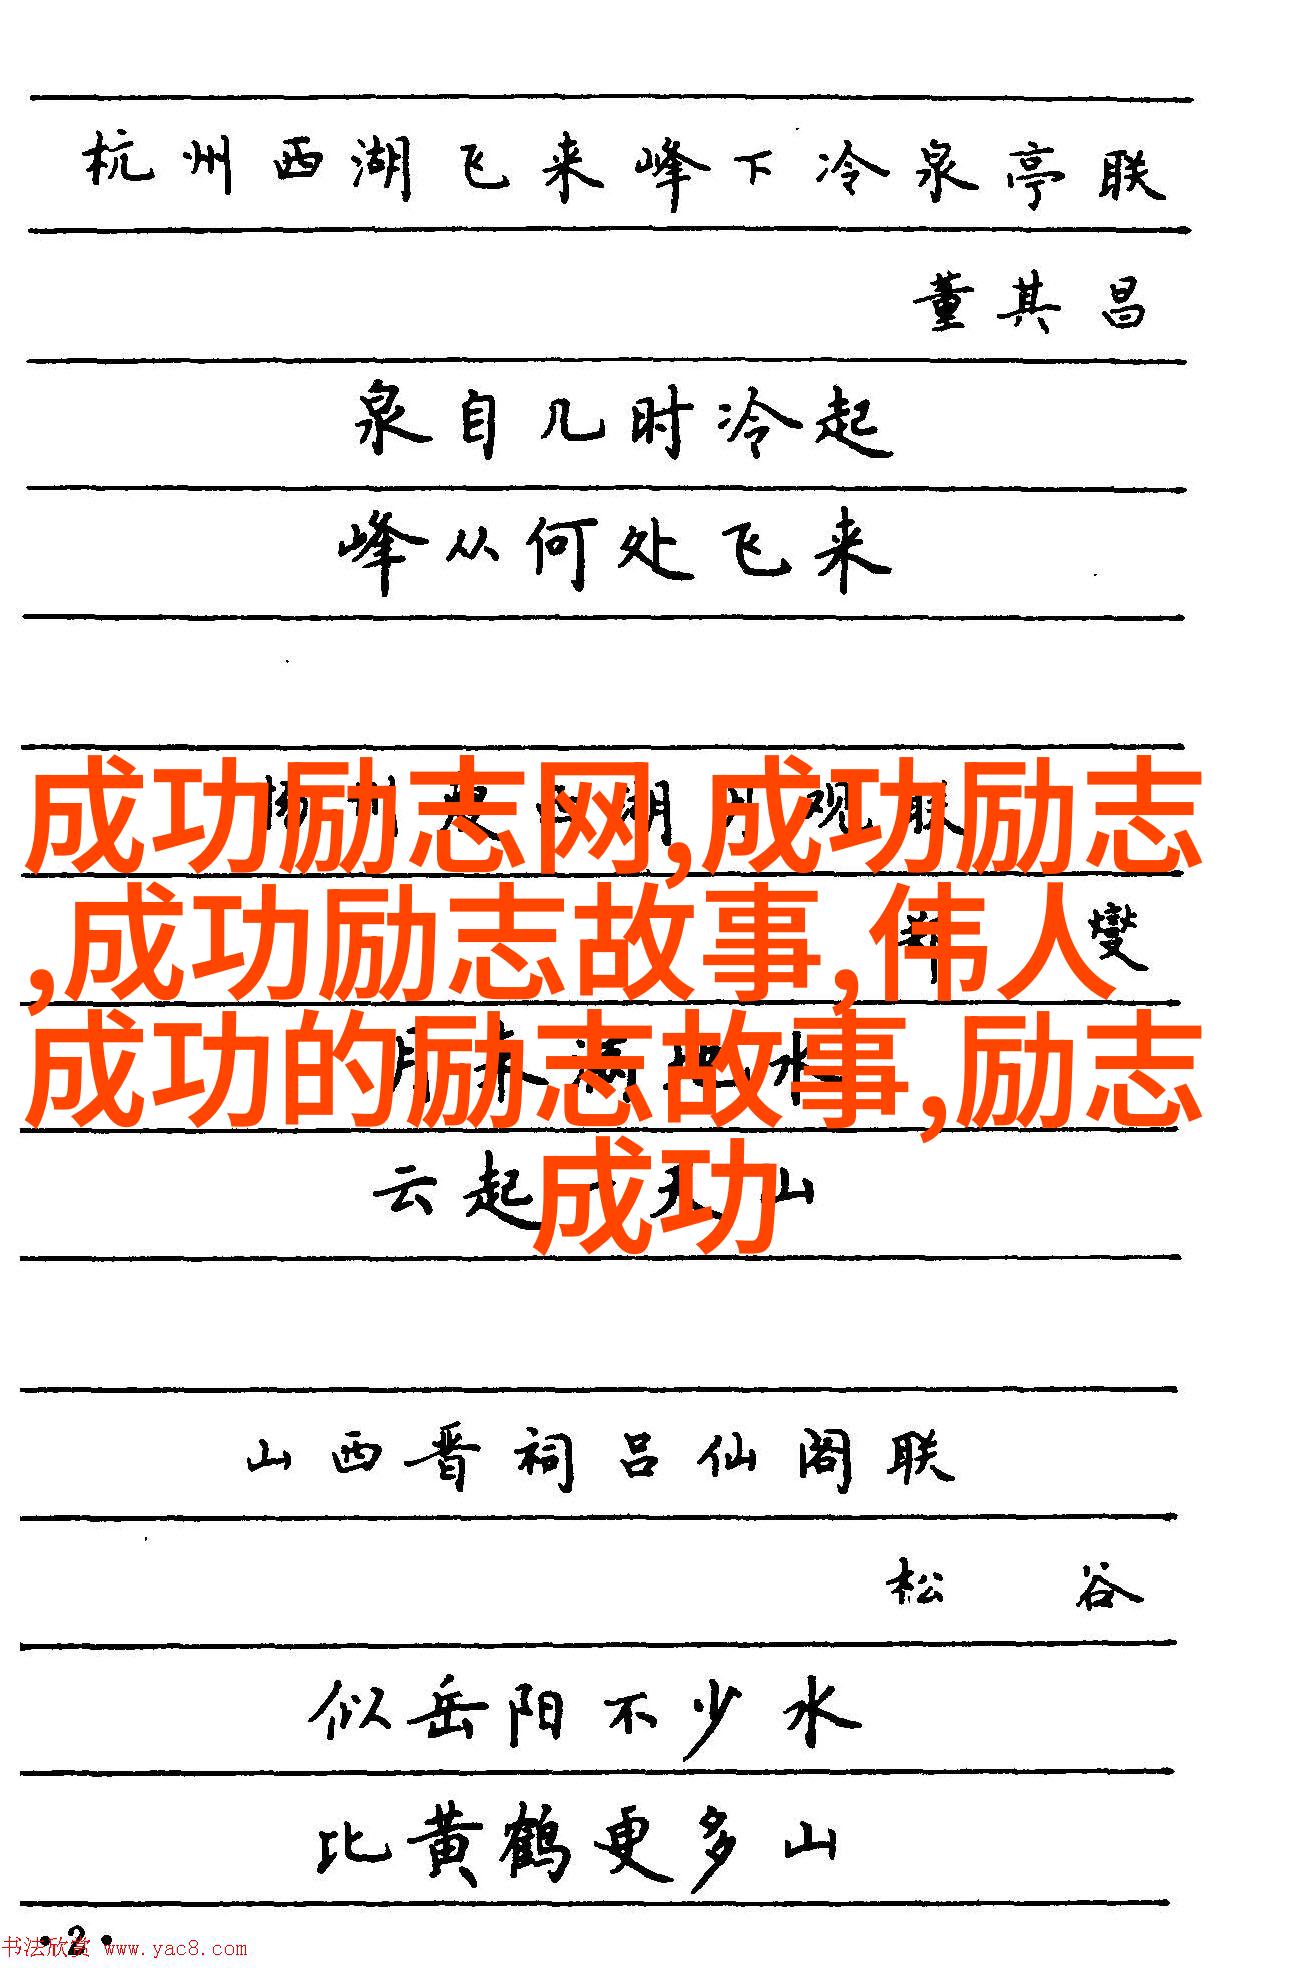 杭州西湖飞来峰下冷泉亭联
董其昌
泉自几时冷起
峰从何处飞来
成功励志网,成功励志
,成功励志故事,伟人
成功的励志故事,励志
成功
湖 观联
燮
水
云起一天山
山西晋祠吕仙阁联
松谷
似岳阳不少水
比黄鹤更多山
·2·
书法欣赏 www.yac8.com